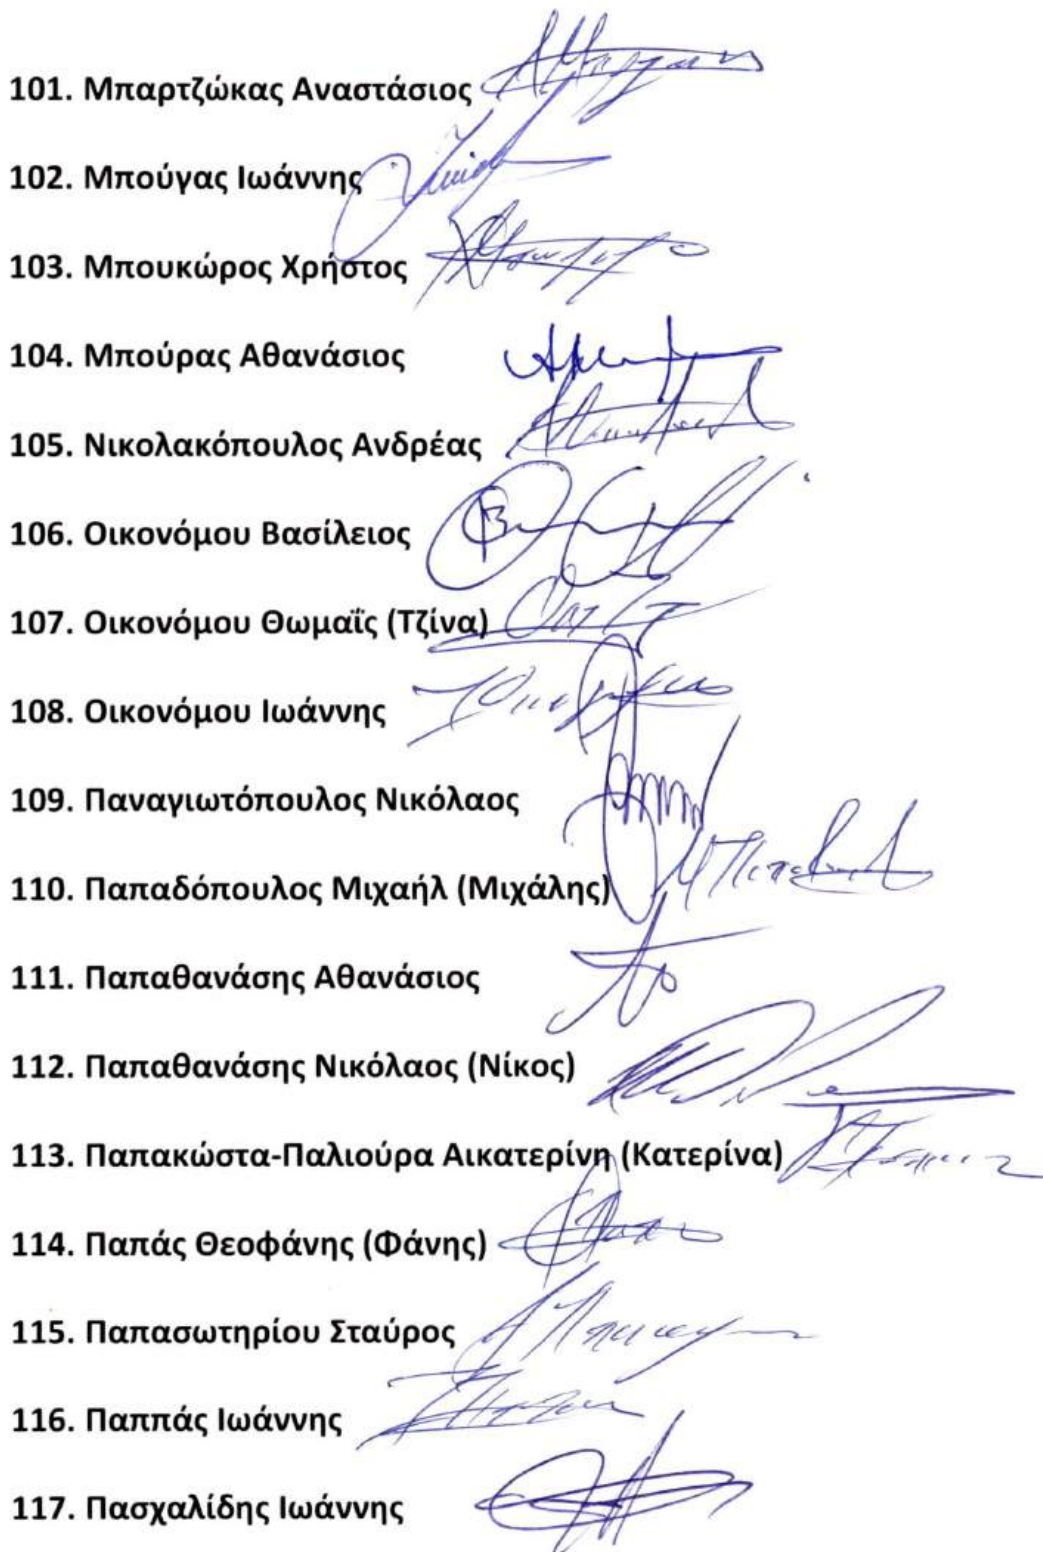 101. Μπαρτζώκας Αναστάσιος
102. Μπούγας Ιωάννης
103. Μπουκώρος Χρήστος
104. Μπούρας Αθανάσιος
105. Νικολακόπουλος Ανδρέας
106. Οικονόμου Βασίλειος
107. Οικονόμου Θωμαΐς (Τζίνα)
108. Οικονόμου Ιωάννης
109. Παναγιωτόπουλος Νικόλαος
110. Παπαδόπουλος Μιχαήλ (Μιχάλης)
111. Παπαθανάσης Αθανάσιος
112. Παπαθανάσης Νικόλαος (Νίκος)
113. Παπακώστα-Παλιούρα Αικατερίνη (Κατερίνα)
114. Παπάς Θεοφάνης (Φάνης)
115. Παπασωτηρίου Σταύρος
116. Παππάς Ιωάννης
117. Πασχαλίδης Ιωάννης